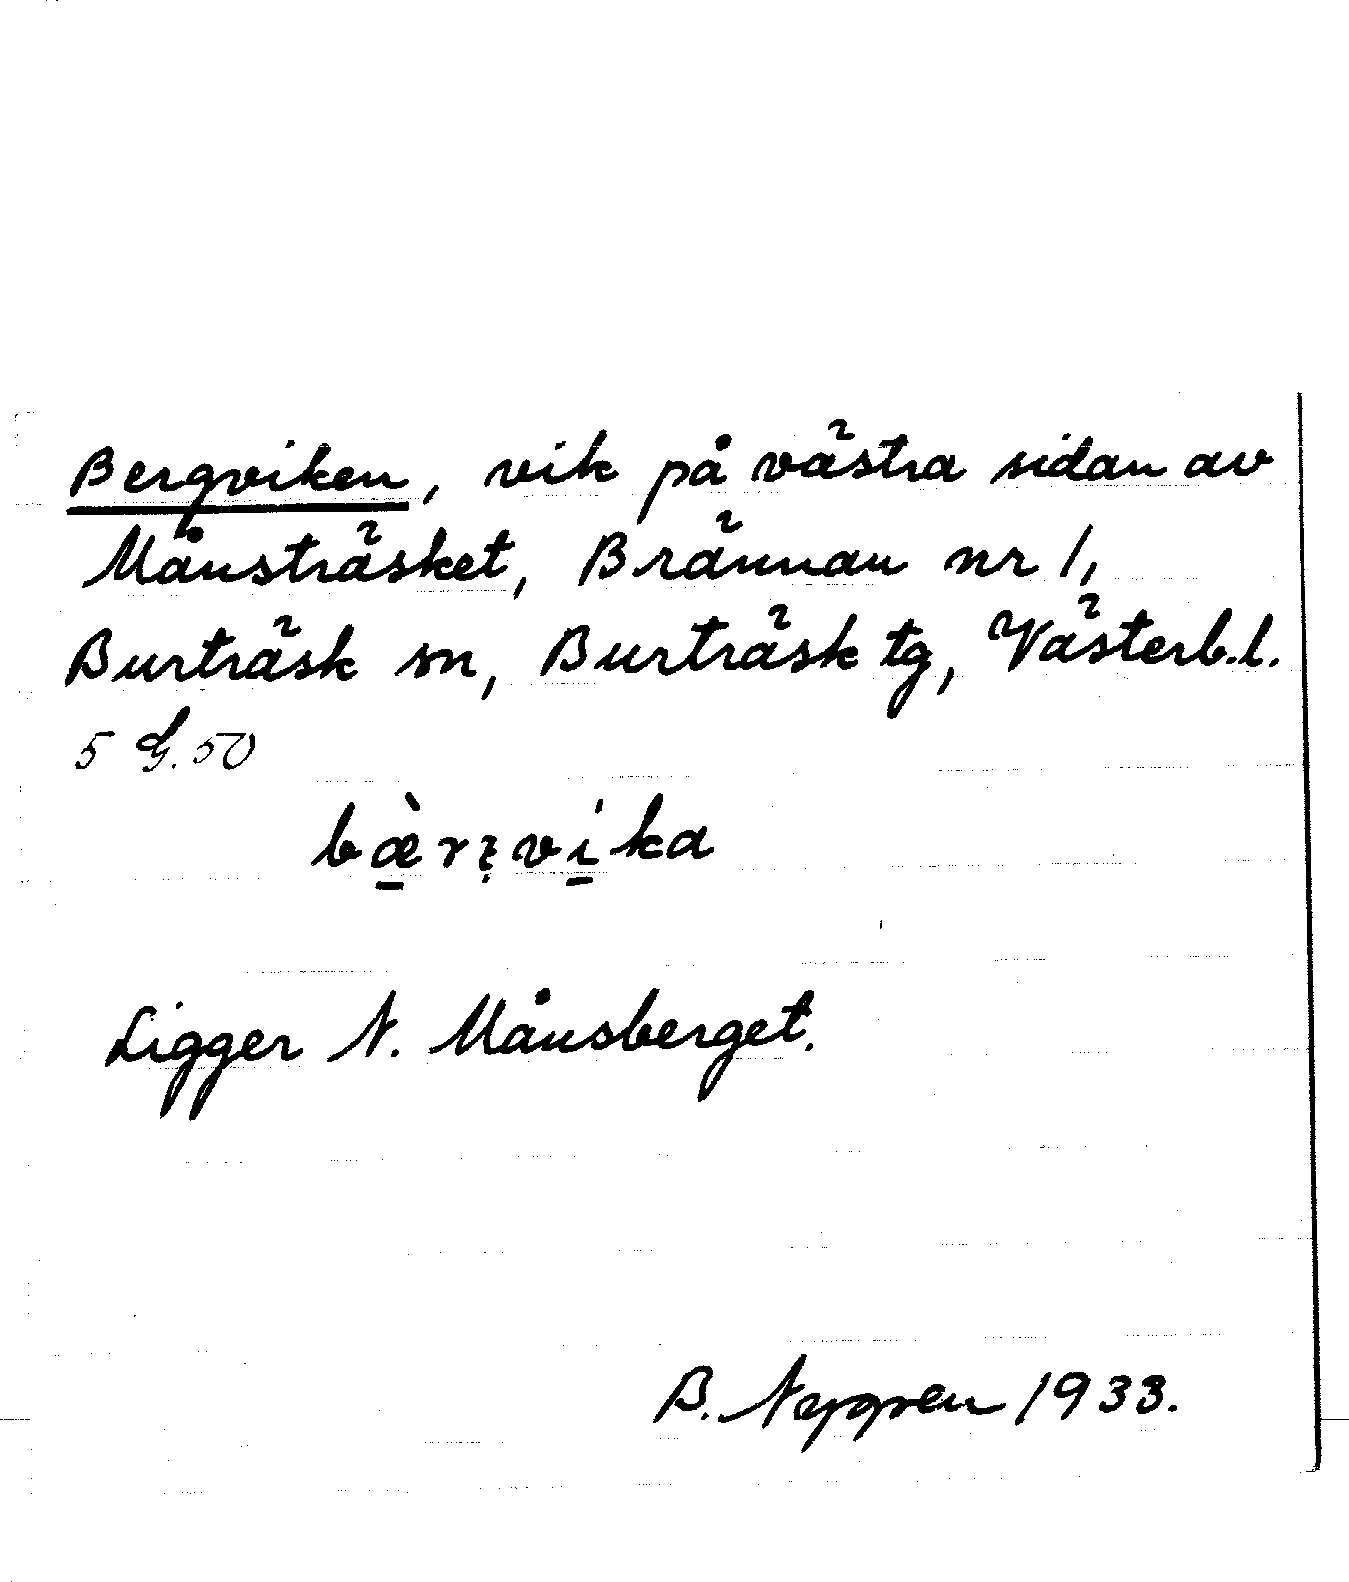 Bergviken, vik på västra sidan av
Månsträsket, Brännan nr 1,
Burträsk sn, Burträsk tg, Västerb.l.
5 G.50
Ligger N. Månsberget.
B. Nygren 1933.